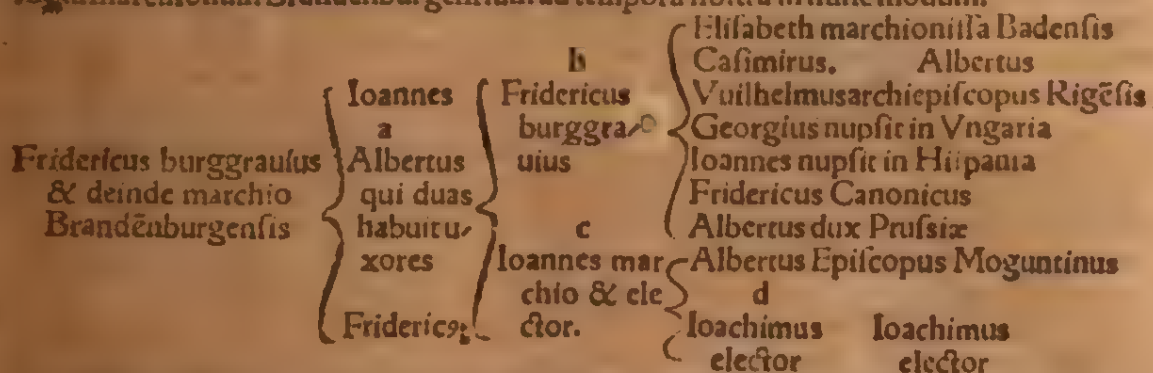 marchionum Brandenburgensium ad tempora nostra in hunc modum.
Fridericus burggrauius
& deinde marchio
Brandēnburgensis
Ioannes
a
Albertus
qui duas
habuit u⸗
xores
Fridericꝰ
b
Fridericus
burggra⸗
uius
c
Ioannes mar
chio & ele
ctor.
Elisabeth marchionissa Badensis
Casimirus. Albertus
Vuilhelmus archiepiscopus Rigēsis
Georgius nupsit in Vngaria
Ioannes nupsit in Hispania
Fridericus Canonicus
Albertus dux Prussiæ
Albertus Episcopus Moguntinus
d
Ioachimus Ioachimus
elector elector